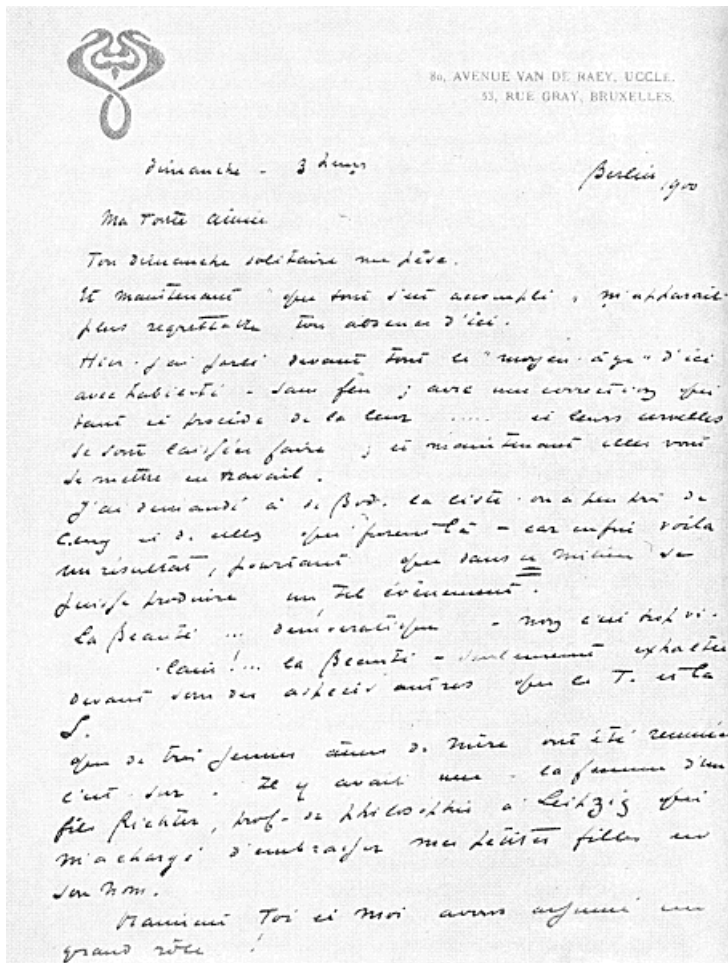 80, AVENUE VAN DE RAEY, UCCLE.
53, RUE GRAY, BRUXELLES.
dimanche - 3 heures
Berlin 1900
Ma toute aimée
Ton dimanche solitaire me pèse.
Et maintenant que tout s'est accompli, m'apparait
plus regrettable ton absence d'ici.
Hier j'ai parlé devant tout le "moyen-âge" d'ici
avec habileté - sans feu ; avec une correction qui
tant et procède de la leur ..... et leurs cervelles
se sont laissées faire ; et maintenant elles vont
se mettre en travail.
J'ai demandé à de Bod. la liste de
ceux et de celles qui furent là - car enfin voilà
un résultat, pourtant que dans ce milieu se
puisse produire un tel événement.
La Beauté ... démocratique - non c'est trop vi-
lain !... la Beauté - seulement exaltée
devant sous des aspects autres que le T. et la
S.
que de très jeunes âmes de mère ont été remuées
c'est sur. Il y avait une - la femme d'un
fils Richter, prof. de philosophie à Leipzig qui
m'a chargé d'embrasser mes petites filles en
son nom.
Vraiment Toi et Moi avons assumé un
grand rôle !